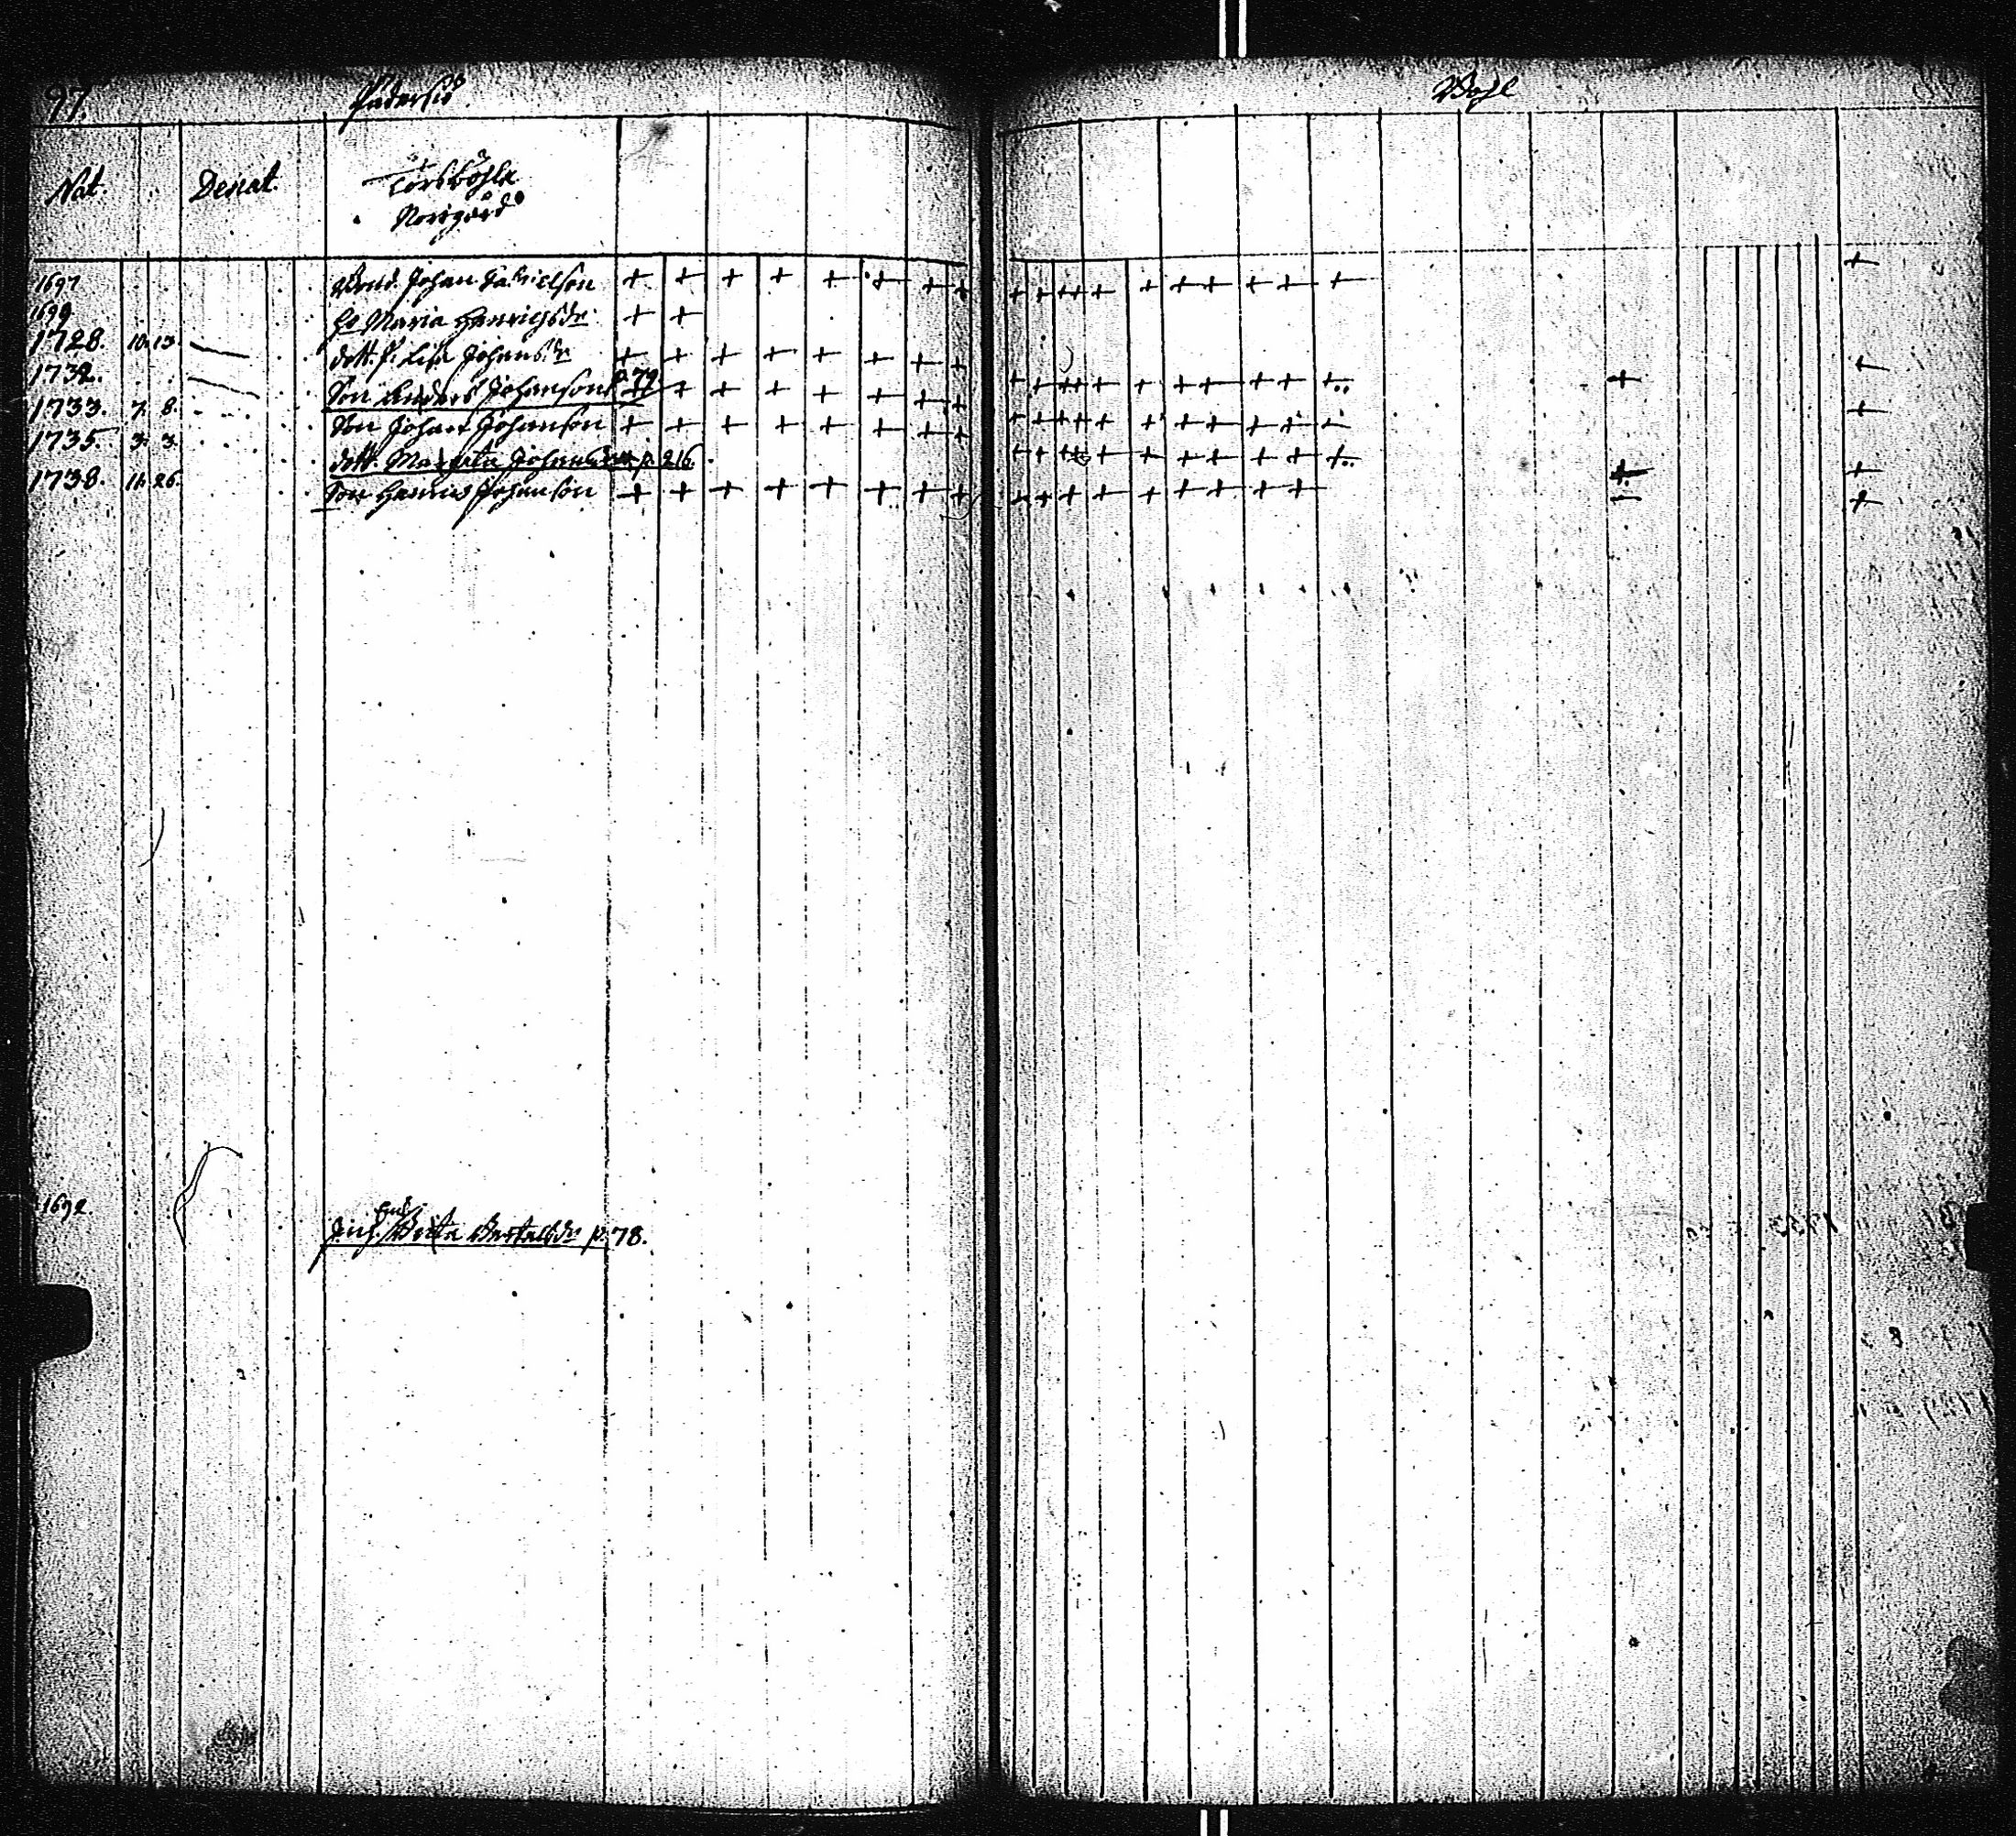 97.
Bohl
Nat. Denat. Torsböhle
Norrgård
1697 Bond. Johan Gabrielson
1699 H. Maria Henrichsdr
1728. 10. 13. dott. Lisa Johansdr
1732. Son Anders Johanson p. 79
1733. 7. 8. Son Johan Johanson
1735. 3. 3. dott. Margeta Johansdr p. 216.
1738. 11. 26. Son Henric Johanson
1692. Inh. Enk. Brita Bertelsdr p. 78.